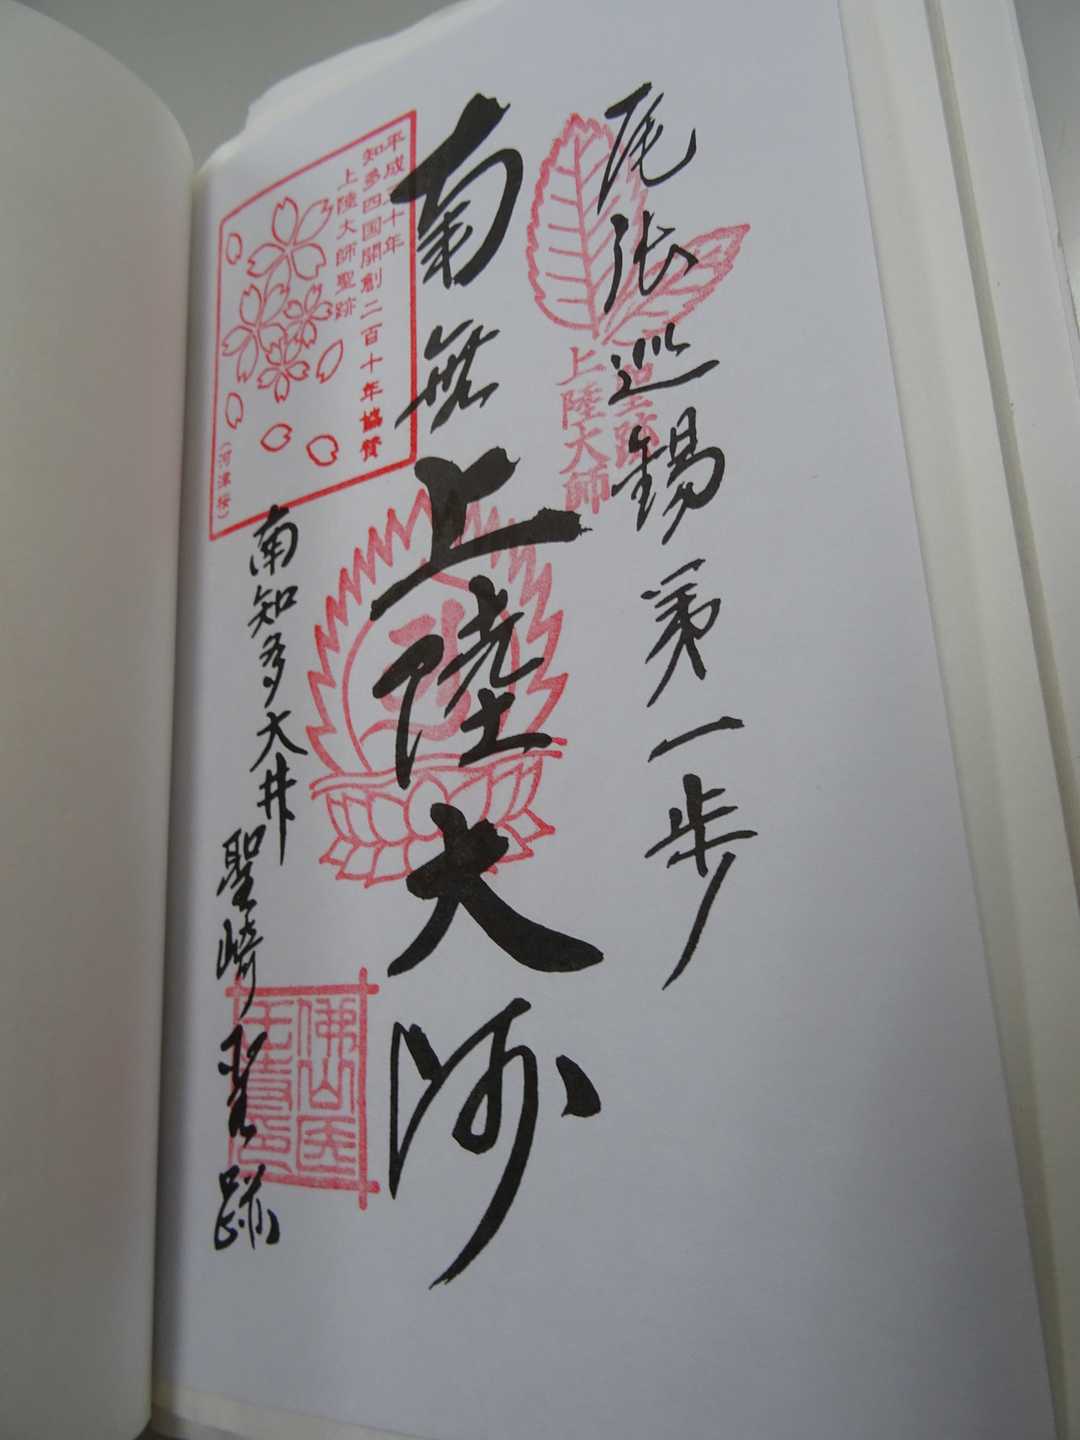 尾張巡錫第一歩
聖跡
上陸大師
南無上陸大師
平成三十年
知多四国開創二百十年協賛
上陸大師聖跡
（河津桜）
南知多大井
聖崎聖跡